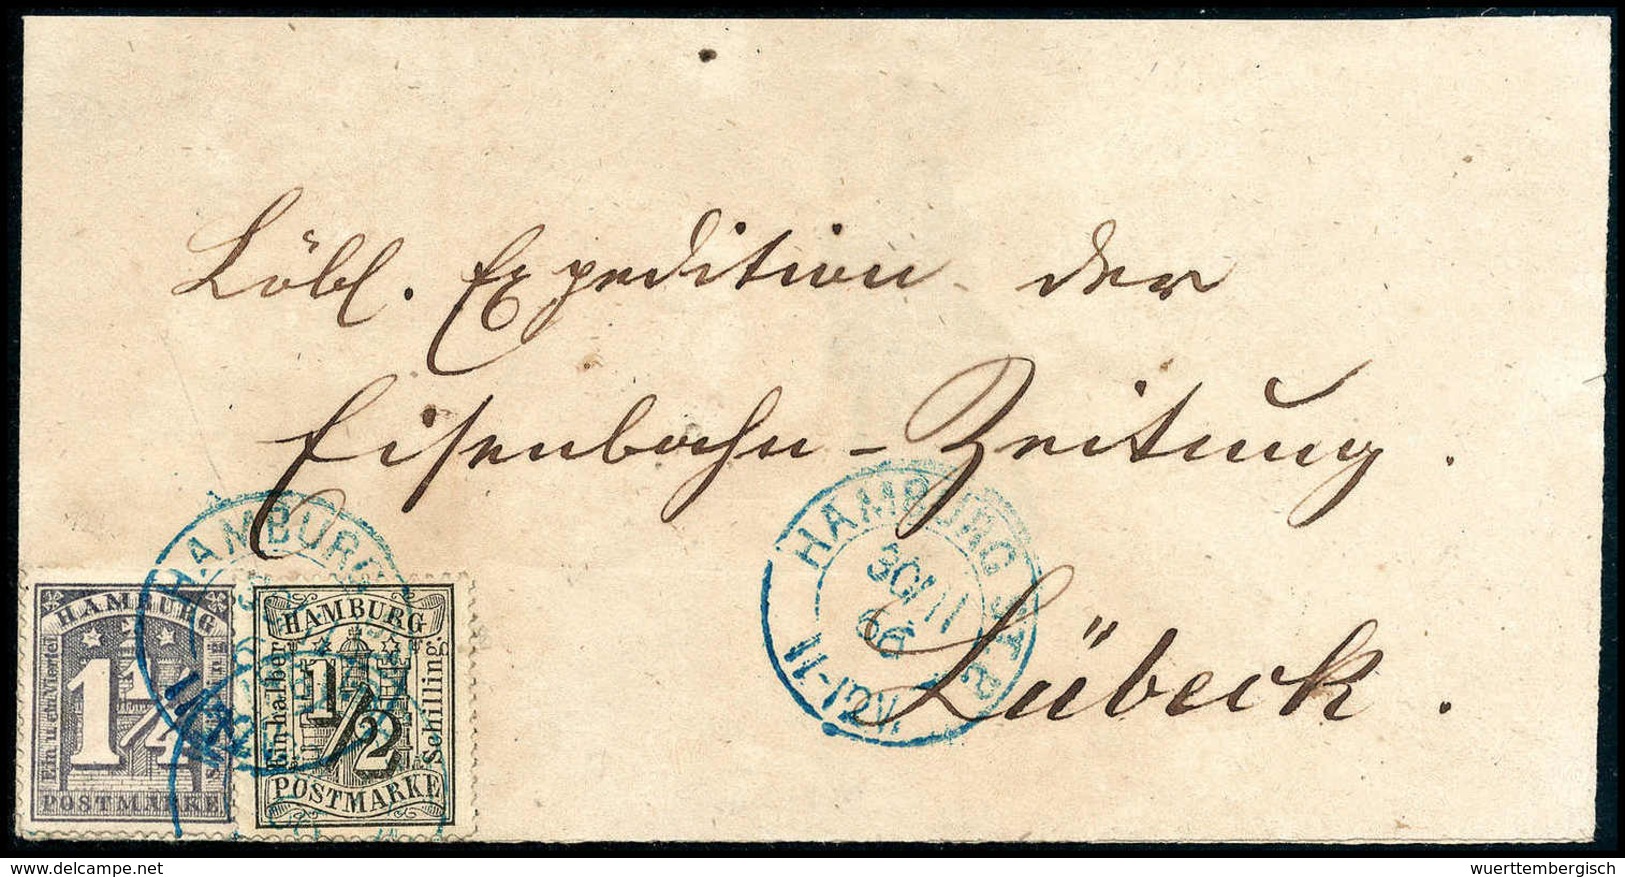 Löbl. Expedition der
Eisenbahn-Zeitung.
Lübeck.
HAMBURG
HAMBURG ST.P.
30/11
66
HAMBURG
1 1/4
Ein u. ein Viertel
POSTMARKE
HAMBURG
Ein halber
1/2
Schilling
POSTMARKE
© www.delcampe.net
wuerttembergisch